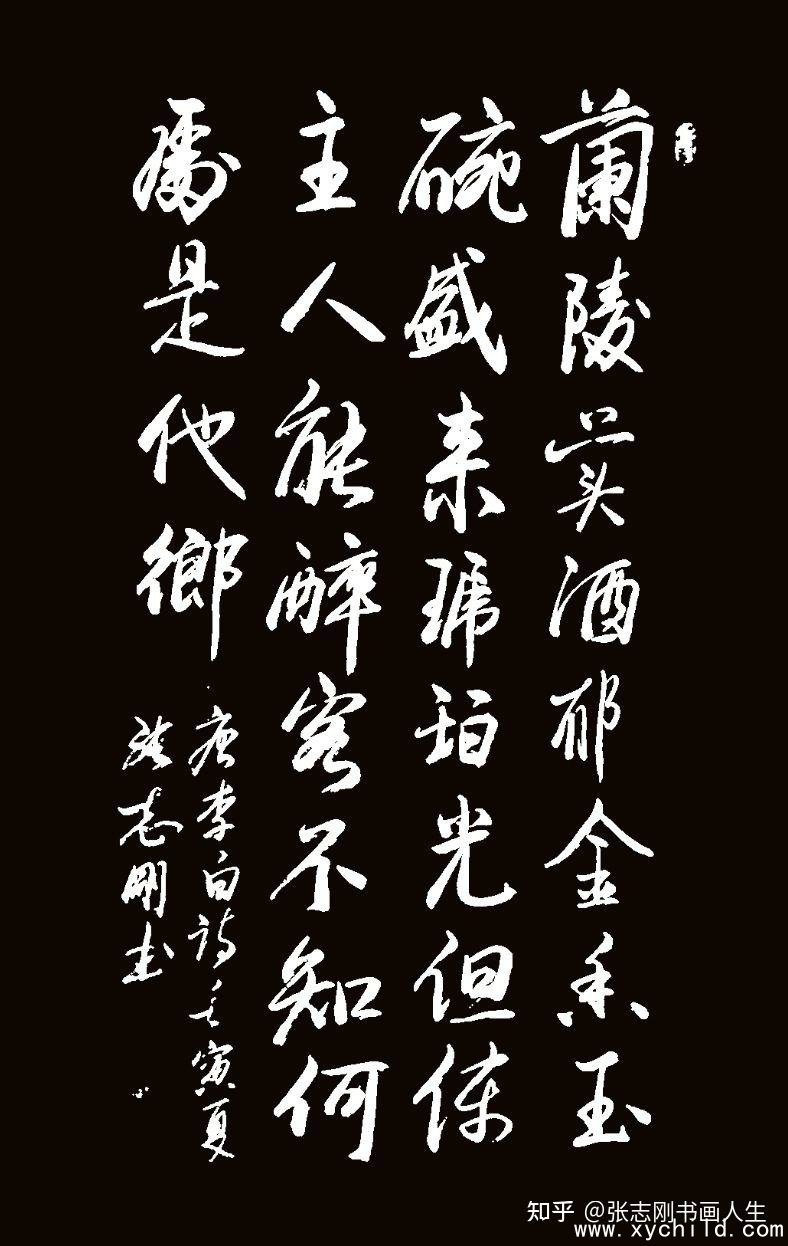 蘭陵美酒郁金香玉
碗盛来琥珀光但使
主人能醉客不知何
處是他鄉
唐李白詩壬寅夏
張志剛書
知乎 @张志刚书画人生
www.xychild.com